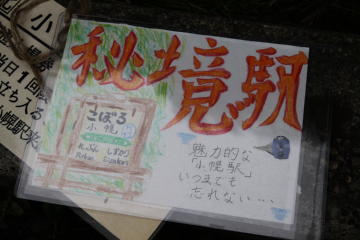 秘境駅
こぼろ
小幌
れぶん しずかり
Rebun Shizukari
魅力的な
「小幌駅」
いつまでも
忘れない…
小
当日1回
立ち入る